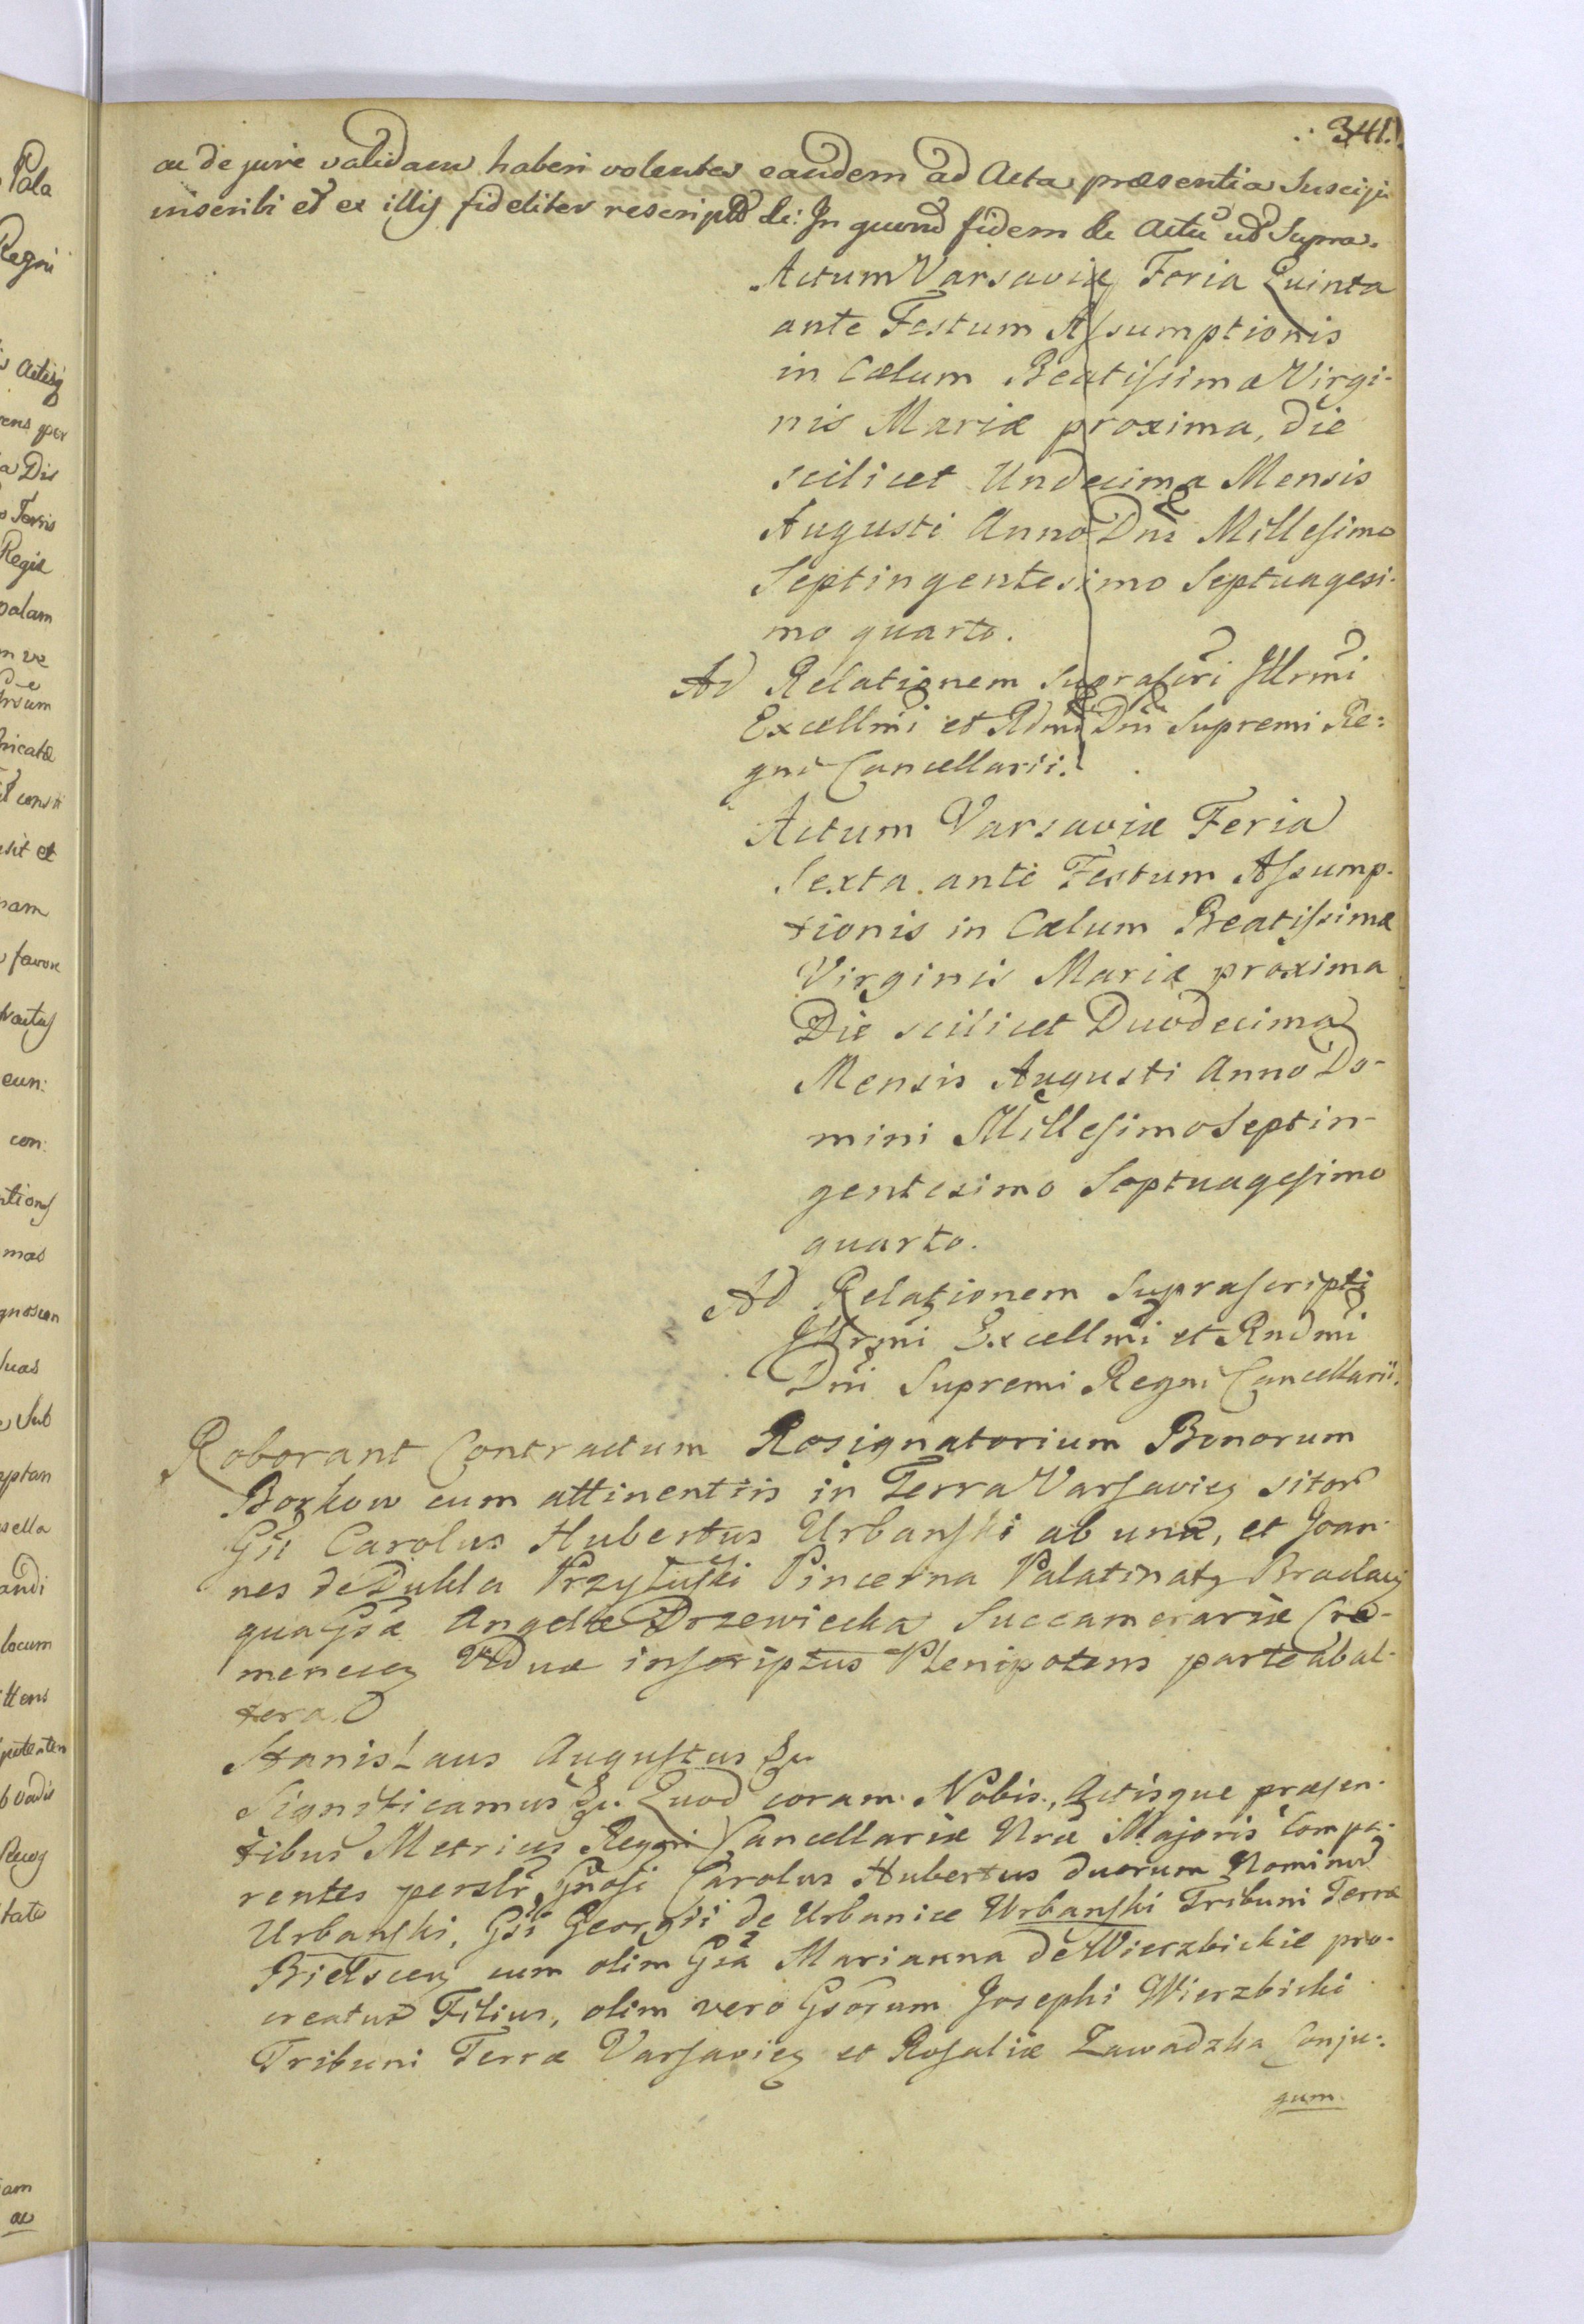 341.
ac de jure validam haberi volentes eandem ad Acta præsentia Suscipi
inscribi et ex illis fideliter rescripto &c: In quorũ fidem &c Actũ ut Supra.
Actum Varsaviæ Feria Quinta
ante Festum Assumptionis
in Cælum Beatissimæ Virgi-
nis Mariæ proxima, die
scilicet Undecima Mensis
Augusti Anno Dni Millesimo
Septingentesimo Septuagesi-
mo quarto.
Ad Relationem suprascri Illrmi
Excellmi et Rdmi Dni Supremi Re:
gni Cancellarii.
Actum Varsaviæ Feria
Sexta ante Festum Assump-
tionis in Cælum Beatissimæ
Virginis Mariæ proxima
Die scilicet Duodecima
Mensis Augusti Anno Do-
mini Millesimo Septin-
gentesimo Septuagesimo
quarto.
Ad Relationem Suprascripti
Illrmi Excellmi et Rndmi
Dni Supremi Regni Cancellarii.
Roborant Contractum Resignatorium Bonorum
Bozkow cum attinentiis in Terra Varsavien sitor
Gsi Carolus Hubertus Urbanski ab una, et Joan-
nes de Dukla Przyłuski Pincerna Palatinatq Braclavi
qua Gsæ Angelæ Drzewiecka Succamerariæ Cre-
menecen Viduæ inscriptus Plenipotens parte ab al-
tera.
Stanislaus Augustus &c.
Significamus &c. Quod coram Nobis, Actisque præsen-
tibus Metrices Regni Cancellariæ Nræ Majoris Compa-
rentes perslr Gnosi Carolus Hubertus duorum Nominũ
Urbanski, Gsi Georgii de Urbanice Urbanski Tribuni Terræ
Bielscen cum olim Gsa Marianna de Wierzbickie pro-
creatus Filius, olim vero Gsorum Josephi Wierzbicki
Tribuni Terræ Varsavien et Rosaliæ Zawadzka Conju-:
gum